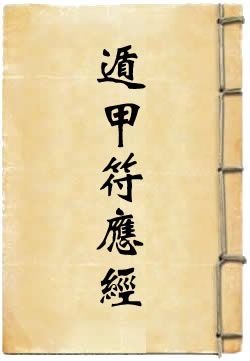 遁甲符應經